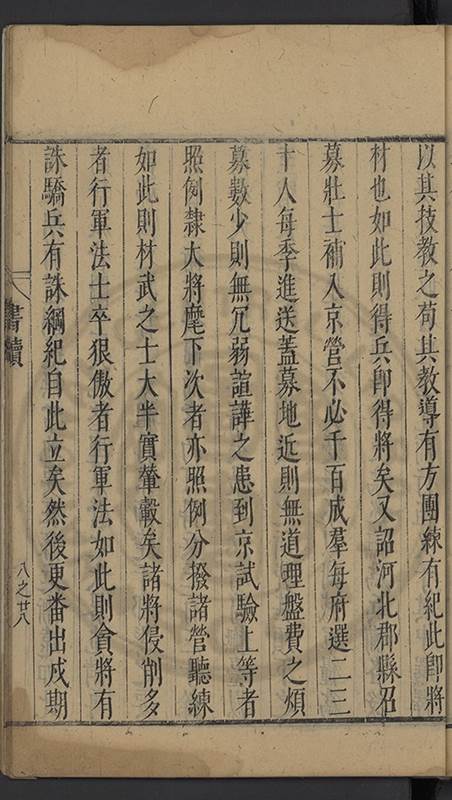 以其技教之苟其教導有方團練有紀此卽將
材也如此則得兵卽得將矣又詔河北郡縣召
募壯士補入京營不必千百成羣每府選二三
十人每季進送蓋募地近則無道理盤費之煩
募數少則無冗弱諠譁之患到京試驗上等者
照例隸大將麾下次者亦照例分撥諸營聽練
如此則材武之士大半實輦轂矣諸將侵削多
者行軍法士卒狠傲者行軍法如此則貪將有
誅驕兵有誅綱紀自此立矣然後更畨出戍期
書牘
八之廿八